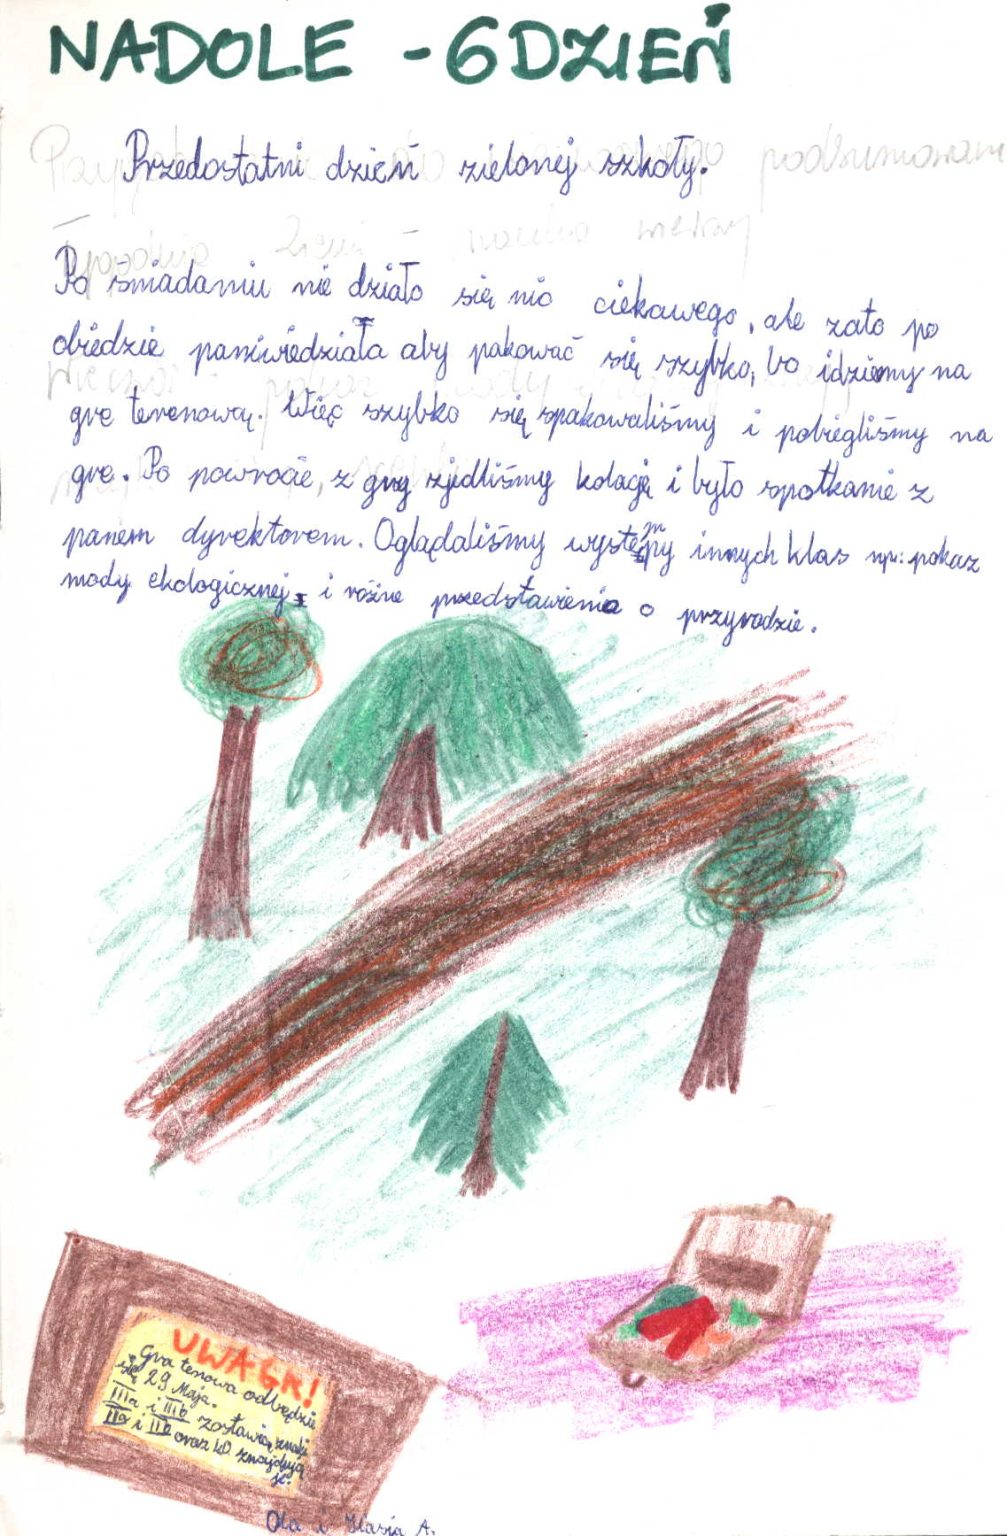 NADOLE - 6 DZIEŃ
Przedostatni dzień zielonej szkoły.
Po śniadaniu nie działo się nic ciekawego, ale zato po
obiedzie paniwiedziała aby pakować się szybko, bo idziemy na
grę terenową. Więc szybko się spakowaliśmy i pobiegliśmy na
grę. Po powrocie, z gry zjedliśmy kolację i było spotkanie z
panem dyrektorem. Oglądaliśmy występy innych klas np: pokaz
mody ekologicznej i różne przedstawienia o przyrodzie.
UWAGA!
Gra tenowa odbędzie
się 29 Maja.
IIIa i IIIb zostawią znaki
IIa i IIb oraz KO znajdują
je.
Ola i Maria A.